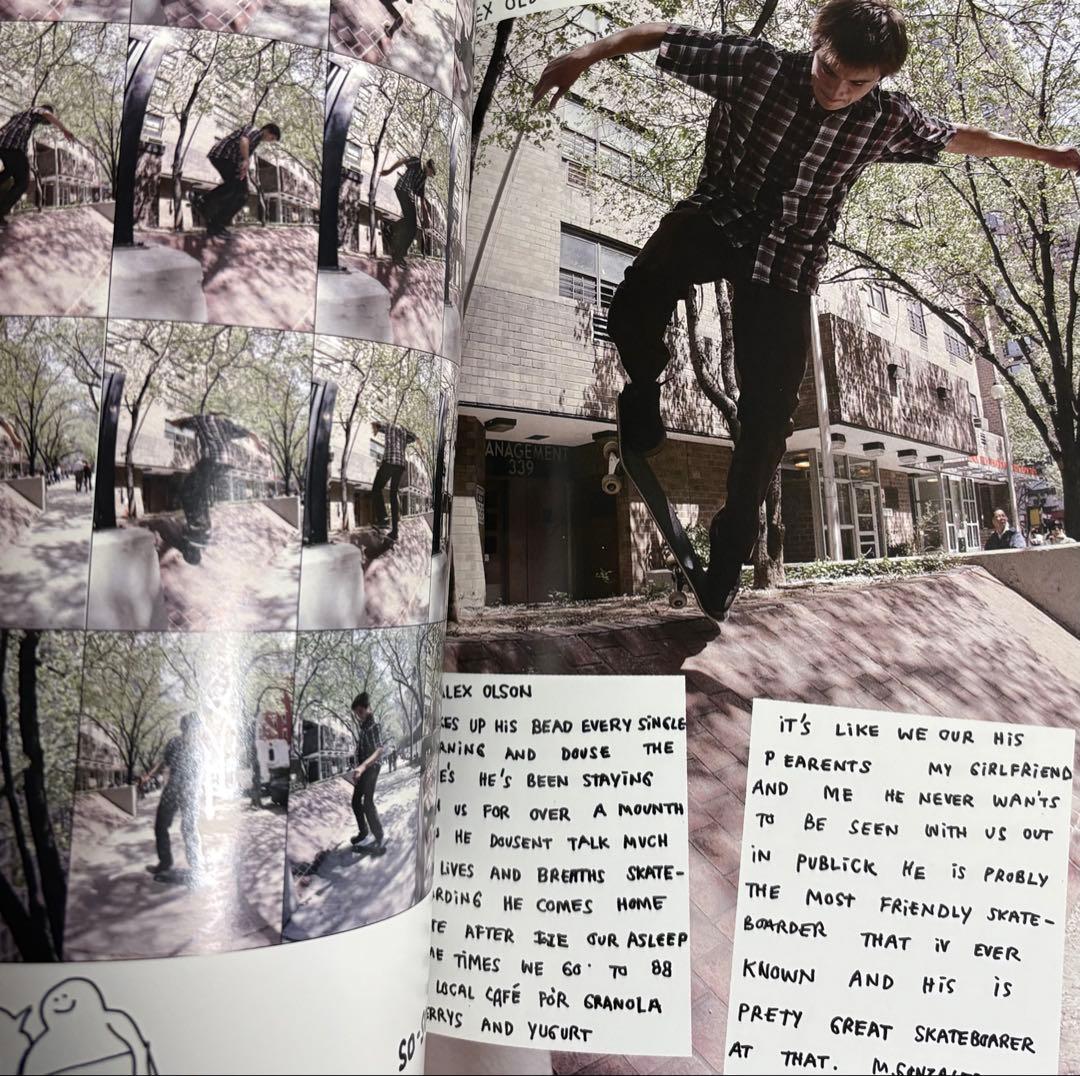 EX OL
ANAGEMENT
339
LEX OLSON
ES UP HiS BEAD EVERY SiNGLE
RNiNG AND DOUSE THE
E'S HE'S BEEN STAYiNG
US FOR OVER A MOUNTH
HE DOUSENT TALK MUCH
LiVES AND BREATHS SKATE-
RDiNG HE COMES HOME
TE AFTER OUR ASLEEP
ME TiMES WE GO TO 88
LOCAL CAFÉ FOR GRANOLA
ERRYS AND YUGURT
iT'S LiKE WE OUR HiS
PEARENTS MY GiRLFRiEND
AND ME HE NEVER WAN'TS
TO BE SEEN WiTH US OUT
iN PUBLiCK HE iS PROBLY
THE MOST FRiENDLY SKATE-
BOARDER THAT iV EVER
KNOWN AND HiS iS
PRETY GREAT SKATEBOARER
AT THAT. M.GONZALE
SO-